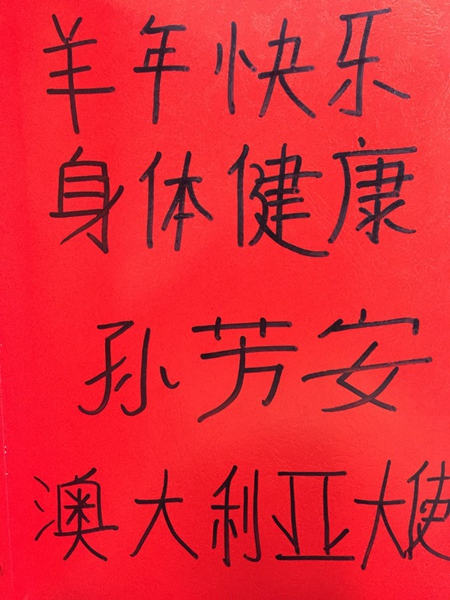 羊年快乐
身体健康
孙芳安
澳大利亚大使